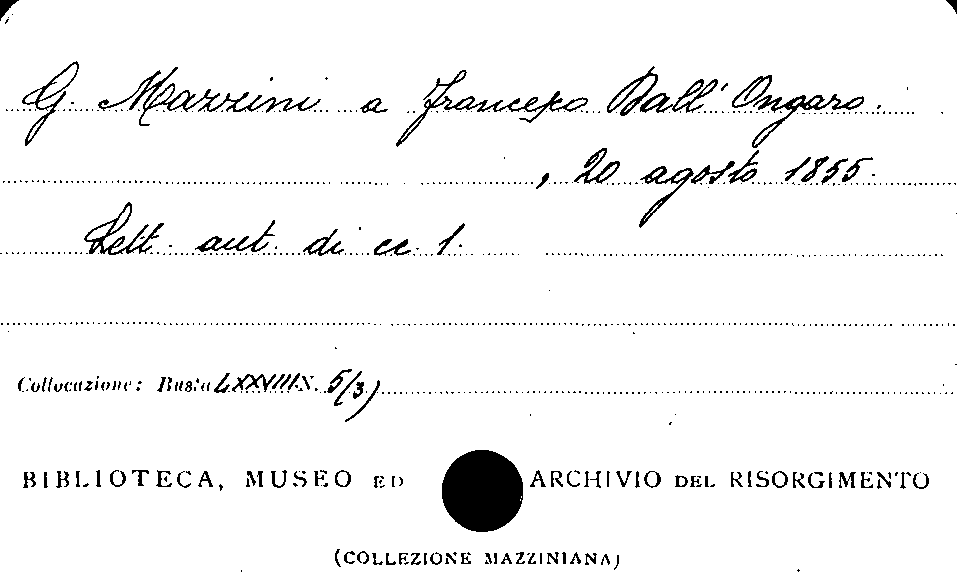 G. Mazzini a Francesco Dall' Ongaro.
, 20 agosto 1855.
Lett. aut. di cc. 1.
Collocazione: Busta LXXVIII N. 5/3)
BIBLIOTECA, MUSEO ED ARCHIVIO DEL RISORGIMENTO
(COLLEZIONE MAZZINIANA)